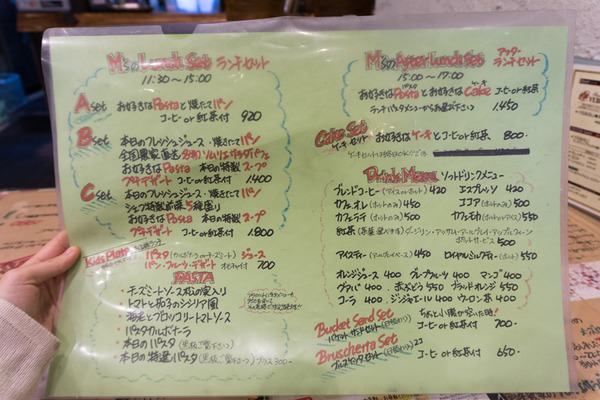 M'sのLunch Set ランチセット
11:30〜15:00
A set お好きなPastaと焼たてパン
コーヒーor紅茶付 920
B set 本日のフレッシュジュース・焼きたてパン
お好きなPasta 本日の特製スープ
プチデザート コーヒーor紅茶付 1,400
C set 本日のフレッシュジュース・焼きたてパン
シェフ特製前菜5種盛り
お好きなPasta 本日の特製スープ
プチデザート コーヒーor紅茶付 1,800
Kids Plate
パスタ(カルボナーラorチーズミート) ジュース
パン・フルーツ・デザート オモチャ付 700
PASTA
・チーズミートソース松の実入り
・トマトと茄子のシシリア風
・海老とブロッコリートマトソース
・パスタカルボナーラ
・本日のパスタ(黒板ご覧下さい)
・本日の特選パスタ(黒板ご覧下さい)プラス300
M'sのAfter Lunch Set アフターランチセット
15:00〜17:00
お好きなPastaとお好きなCake ケーキ
コーヒーor紅茶付 1,450
ランチパスタメニューからお選び下さい
Cake Set ケーキセット お好きなケーキとコーヒーor紅茶 800
Drink Menu ソフトドリンクメニュー
ブレンドコーヒー(アイスorホット) 420 エスプレッソ 420
カフェオレ(ホットのみ) 450 ココア(ホットのみ) 500
カフェラテ(ホットのみ) 500 カフェモカ(ホットorアイス) 550
ホットサービス 500
アイスティー 450 ロイヤルミルクティー(ホット) 550
オレンジジュース 400 グレープフルーツ 400 マンゴ 400
グァバ 400 赤ぶどう 550 ブラッドオレンジ 550
コーラ 400 ジンジャエール 400 ウーロン茶 400
ちょっと小腹が空いた時!
Bucket Sand Set
バケットサンドセット(日替わり) コーヒーor紅茶付 700
Bruscherta Set
ブルスケッタセット(日替わり)2コ コーヒーor紅茶付 650